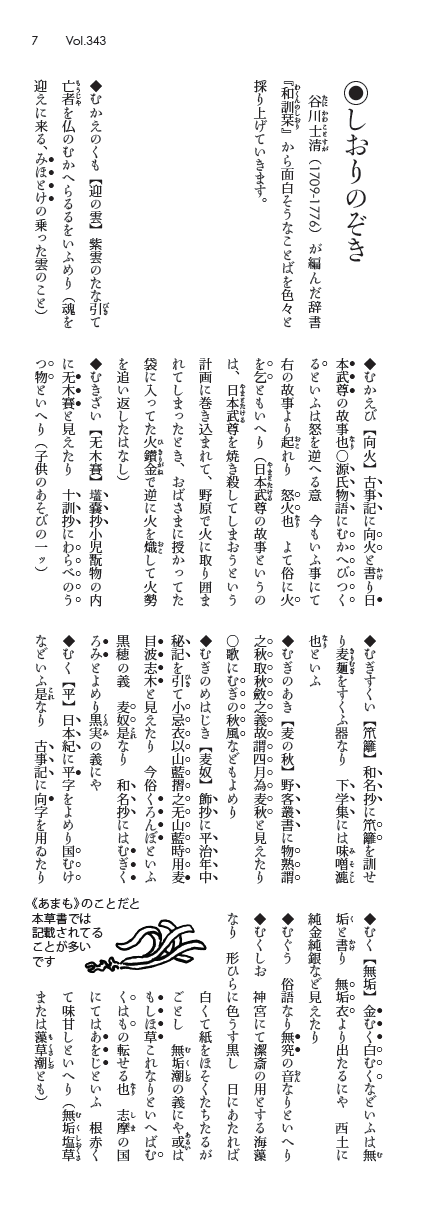 7 Vol.343
◉しおりのぞき
谷川士清（1709-1776）が編んだ辞書
『和訓栞』から面白そうなことばを色々と
採り上げていきます。
◆むかえのくも【迎の雲】紫雲のたな引て
亡者を仏のむかへらるるをいふめり（魂を
迎えに来る、みほとけの乗った雲のこと）
◆むかえび【向火】古事記に向火と書り日
本武尊の故事也〇源氏物語にむかへびつく
るといふは怒を逆へる意　今もいふ事にて
右の故事より起れり　怒火也　よて俗に火
を乞ともいへり（日本武尊の故事というの
は、日本武尊を焼き殺してしまおうという
計画に巻き込まれて、野原で火に取り囲ま
れてしまったとき、おばさまに授かってた
袋に入ってた火鑽金で逆に火を熾して火勢
を追い返したはなし）
◆むきざい【无木賽】壒嚢抄小児翫物の内
に无木賽と見えたり　十訓抄にわらべのう
つ物といへり（子供のあそびの一ッ）
◆むぎすくい【笊籬】和名抄に笊籬を訓せ
り麦麺をすくふ器なり　下学集には味噌漉
也といふ
◆むぎのあき【麦の秋】野客叢書に物熟謂
之秋取秋斂之義故謂四月為麦秋と見えたり
〇歌にむぎの秋風などもよめり
◆むぎのめはじき【麦奴】飾抄に平治年中
秘記を引て小忌衣以山藍摺之无山藍時用麦
目波志木と見えたり　今俗くろんぼといふ
黒穂の義　麦奴是なり　和名抄にはむぎく
ろみとよめり黒実の義にや
◆むく【平】日本紀に平字をよめり国むけ
などいふ是なり　古事記に向字を用ゐたり
◆むく【無垢】金むく白むくなどいふは無
垢と書り　無垢衣より出たるにや　西土に
純金純銀など見えたり
◆むぐう　俗語なり無究の音なりといへり
◆むくしお　神宮にて潔斎の用とする海藻
なり　形ひらに色うす黒し　日にあたれば
白くて紙をほそくたちたるが
ごとし　無垢潮の義にや或は
もしほ草これなりといへばむ
くはもの転せる也　志摩の国
にてはあをじといふ　根赤く
て味甘しといへり（無垢塩草
または藻草潮とも）
《あまも》のことだと
本草書では
記載されてる
ことが多い
です